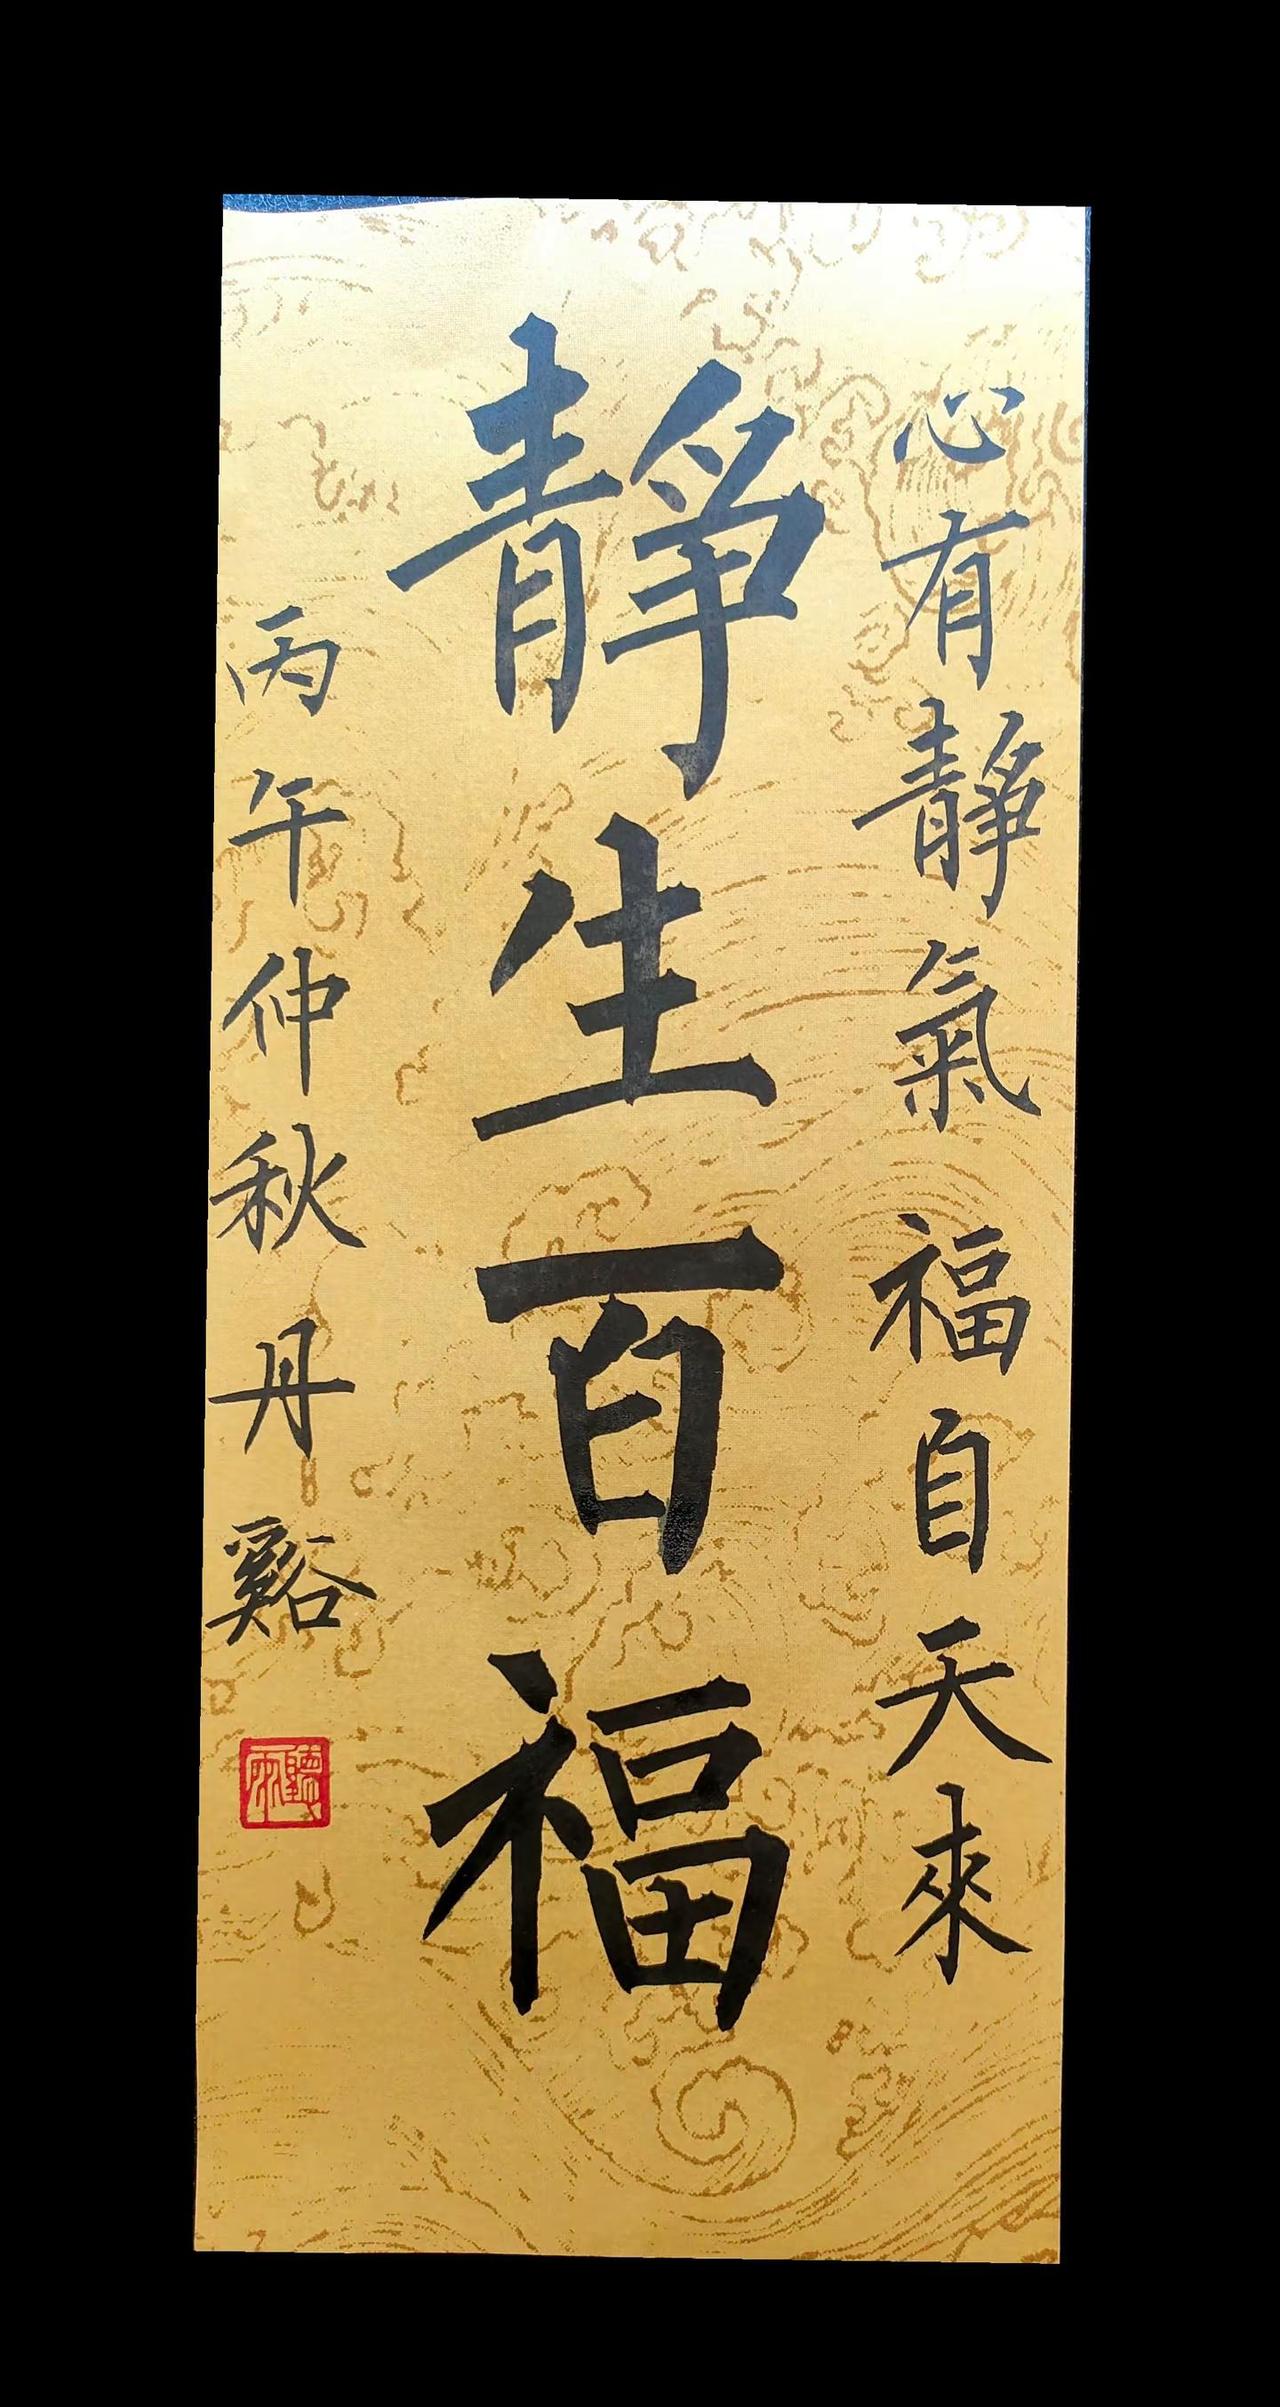 心有靜氣 福自天來
靜生百福
丙午仲秋丹谿
聽雨